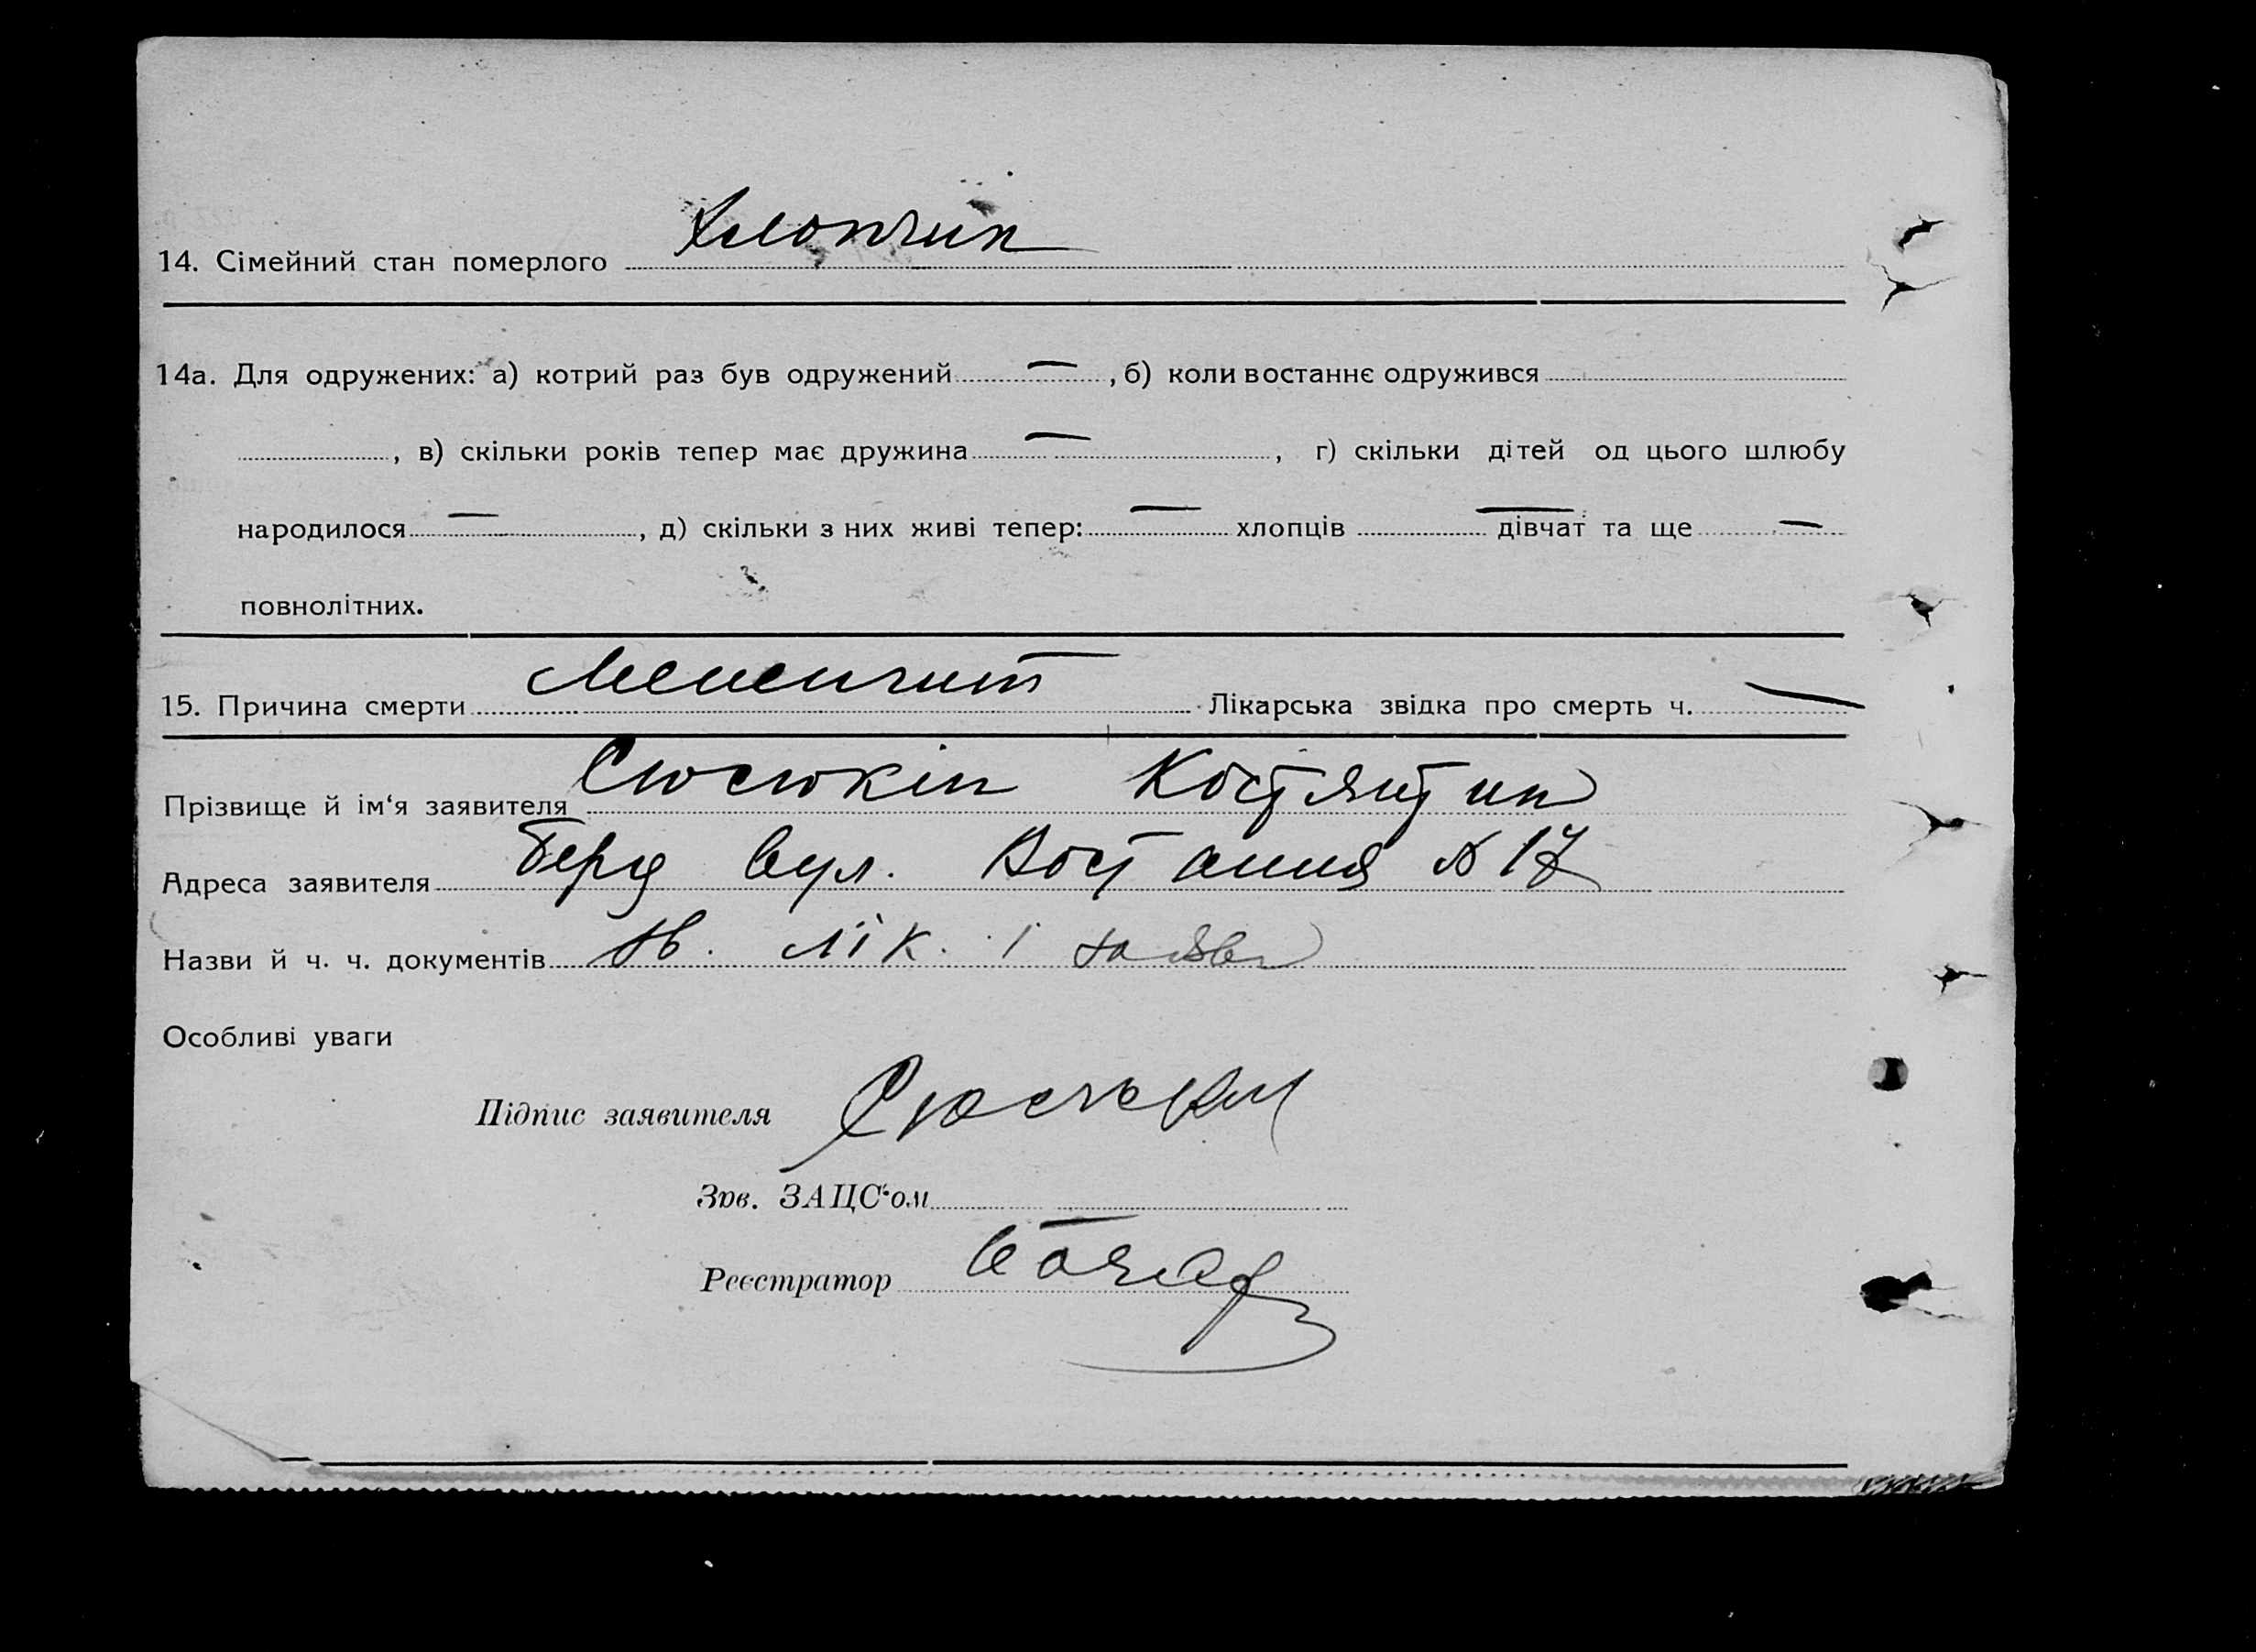 14. Сімейний стан померлого Хлопчик
14а. Для одружених: а) котрий раз був одружений —, б) коли востаннє одружився
, в) скільки років тепер має дружина —, г) скільки дітей од цього шлюбу
народилося —, д) скільки з них живі тепер: — хлопців — дівчат та ще —
повнолітних.
15. Причина смерти Мененгит Лікарська звідка про смерть ч. —
Прізвище й ім‘я заявителя Сюсюкін Костянтин
Адреса заявителя Берд вул. Востання № 17
Назви й ч. ч. документів лік. і заява
Особливі уваги
Підпис заявителя Сюсюкин
Зав. ЗАЦС‘ом
Реєстратор